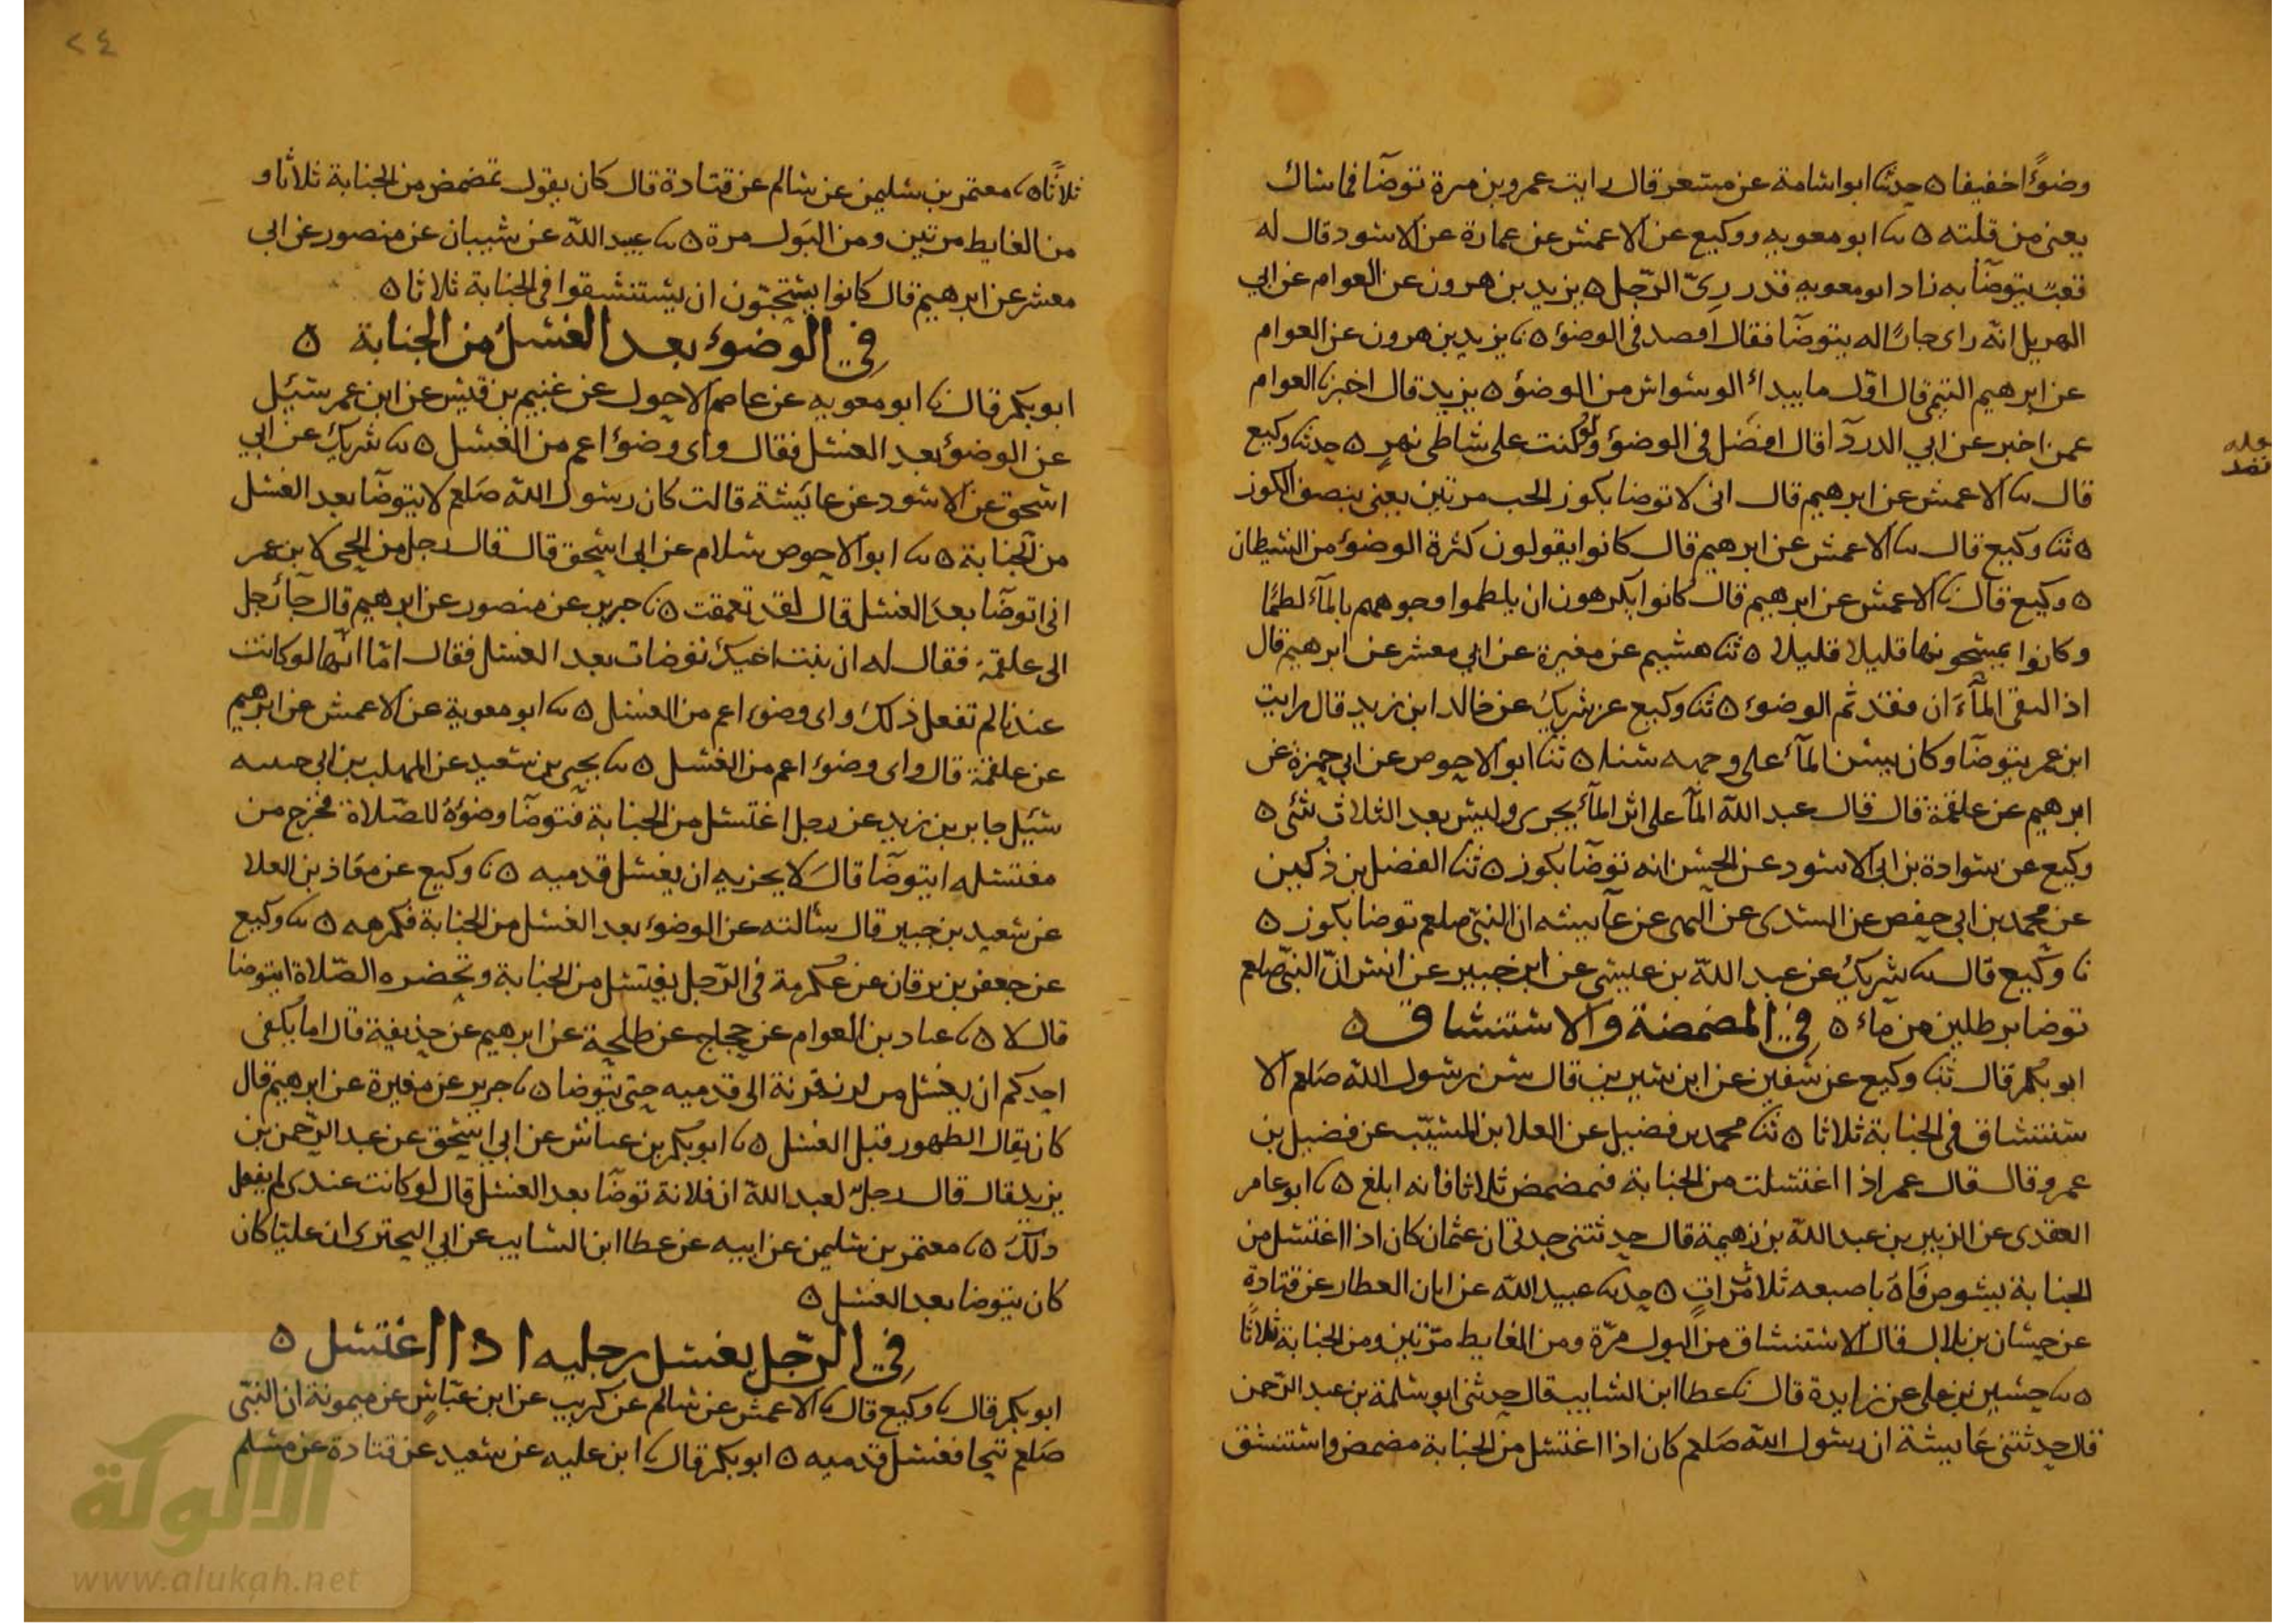 وضوًا خفيفا ه حدثنا ابو اسامة عن مسعر قال رايت عمرو بن مرة توضأ فما سال
يعني من قلته ه نا ابو معويه ووكيع عن الاعمش عن عمارة عن الاسود قال له
قعب يتوضأ به زاد ابو معويه قدر ريّ الرّجل ه يزيد بن هرون عن العوام عن ابي
الهذيل انّه راى جارًا له يتوضأ فقال اقصد في الوضوء ه نا يزيد بن هرون عن العوام
عن ابرهيم التيمي قال اوّل ما يبداء الوسواس من الوضوء ه يزيد قال اخبرنا العوام
عمن اخبر عن ابي الدردآ قال اقصد في الوضوء ولو كنت على شاطى نهرٍ ه حدثنا وكيع
قال نا الاعمش عن ابرهيم قال اني لاتوضا بكوز الحب مرتين يعني بنصف الكوز
ه ثنا وكيع قال نا الاعمش عن ابرهيم قال كانوا يقولون كثرة الوضوء من الشيطان
ه وكيع قال نا الاعمش عن ابرهيم قال كانوا يكرهون ان يلطموا وجوههم بالمآء لطمًا
وكانوا يمسحونها قليلا قليلا ه ثنا هشيم عن مغيرة عن ابي معشر عن ابرهيم قال
اذا التقى المآءان فقد تم الوضوء ه ثنا وكيع عن شريك عن خالد ابن زيد قال رايت
ابن عمر يتوضأ وكان يسن المآء على وجهه سنا ه ثنا ابو الاحوص عن ابي حمزة عن
ابرهيم عن علقمة قال قال عبد الله المآء على اثر المآء يجرى وليس بعد الثلاث شئى ه
وكيع عن سوادة بن ابي الاسود عن الحسن انه توضأ بكوز ه ثنا الفضل بن دُكين
عن محمد بن ابي حفص عن السدى عن البهى عن عآيشه ان النبّي صلعم توضا بكوز ه
نا وكيع قال نا شريكٌ عن عبد الله بن عيسى عن ابن جبير عن انس انّ النبّي صلعم
توضا برطلين من مآء ه في المضمضة والاستنشاق ه
ابو بكر قال ثنا وكيع عن سفين عن ابن سيرين قال سن رسول الله صَلعم الا
ستنشاق في الجنابة ثلاثا ه ثنا محمد بن فضيل عن العلا بن المسيّب عن فضيل بن
عمرو قال قال عمر اذا اغتسلت من الجنابة فتمضمض ثلاثا فانه ابلغ ه نا ابو عامر
العقدى عن الزبير بن عبد الله بن زهيمة قال حدثتنى جدتي ان عثمان كان اذا اغتسل من
الجنابة يشوص فَاهُ باصبعه ثلاث مرّاتٍ ه حدثنا عبيد الله عن ابان العطار عن قتادةٍ
عن حسان بن بلال قال الاستنشاق من البول مرّة ومن الغايط مرّتين ومن الجنابة ثلاثًا
ه نا حسين بن على عن زايدة قال نا عطا ابن السايب قال حدثني ابو سلمة بن عبد الرّحمن
قال حدثتني عَايشة ان رسول الله صَلعم كان اذا اغتسل من الجنابة مضمض واستنشق
ثلاثًا ه نا معتمر بن سليمن عن سالم عن قتادة قال كان يقول تمضمض من الجنابة ثلاثا و
من الغايط مرتين ومن البَول مرة ه نا عبيد الله عن شيبان عن منصور عن ابي
معشر عن ابرهيم قال كانوا يستحبّون ان يستنشقوا في الجنابة ثلاثا ه
في الوضوء بعد الغسل من الجنابة ه
ابو بكر قال نا ابو معويه عن عاصم الاحول عن غنيم بن قيس عن ابن عمر سئيل
عن الوضوء بعد الغسل فقال واى وضوء اعم من الغسل ه نا شريك عن ابي
اسحق عن الاسود عن عايشة قالت كان رسول الله صَلعم لا يتوضأ بعد الغسل
من الجنابة ه نا ابو الاحوص سلام عن ابي اسحق قال قال رجل من الحي لابن عمر
اني اتوضأ بعد الغسل قال لقد تعمقت ه نا جرير عن منصور عن ابرهيم قال جآء رجل
الى علقمة فقال له ان بنت اخيك توضات بعد الغسل فقال امّا انّها لو كانت
عندنا لم تفعل ذلك واى وضوء اعم من الغسل ه نا ابو معوية عن الاعمش عن ابرهيم
عن علقمة قال واى وضوء اعم من الغسل ه نا يحيى بن سعيد عن المهلب بن ابي حبيبه
سئيل جابر بن زيد عن رجل اغتسل من الجنابة فتوضأ وضوءهُ للصّلاة فخرج من
مغتسله ايتوضأ قال لا يجزيه ان يغسل قدميه ه نا وكيع عن معَاذ بن العلا
عن سعيد بن جبير قال سالته عن الوضوء بعد الغسل من الجنابة فكرهه ه نا وكيع
عن جعفر بن برقان عن عكرمة في الرّجل يغتسل من الجنابة وتحضره الصّلاة ايتوضا
قال لا ه نا عباد بن العوام عن حجاج عن طلحة عن ابرهيم عن حذيفة قال اما يكفى
احدكم ان يغسل من لدن قرنة الى قدميه حتى يتوضا ه نا جرير عن مغيرة عن ابرهيم قال
كان يقال الطهور قبل الغسل ه نا ابو بكر بن عياش عن ابي اسحق عن عبد الرّحمن بن
يزيد قال قال رجلٌ لعبد الله ان فلانة توضأ بعد الغسل قال لو كانت عندى لم يفعل
ذلك ه نا معتمر بن سليمن عن ابيه عن عطا ابن السايب عن ابي البحترى ان عليّا كان
كان يتوضا بعد الغسل ه
في الرّجل يغسل رجليه اذا اغتسل ه
ابو بكر قال نا وكيع قال نا الاعمش عن سالم عن كريب عن ابن عبّاسٍ عن ميمونة ان النبّي
صَلعم تنحا فغسل قدميه ه ابو بكر قال نا ابن عليه عن سعيد عن قتادة عن مسلم
٢٤
الألوكة
www.alukah.net